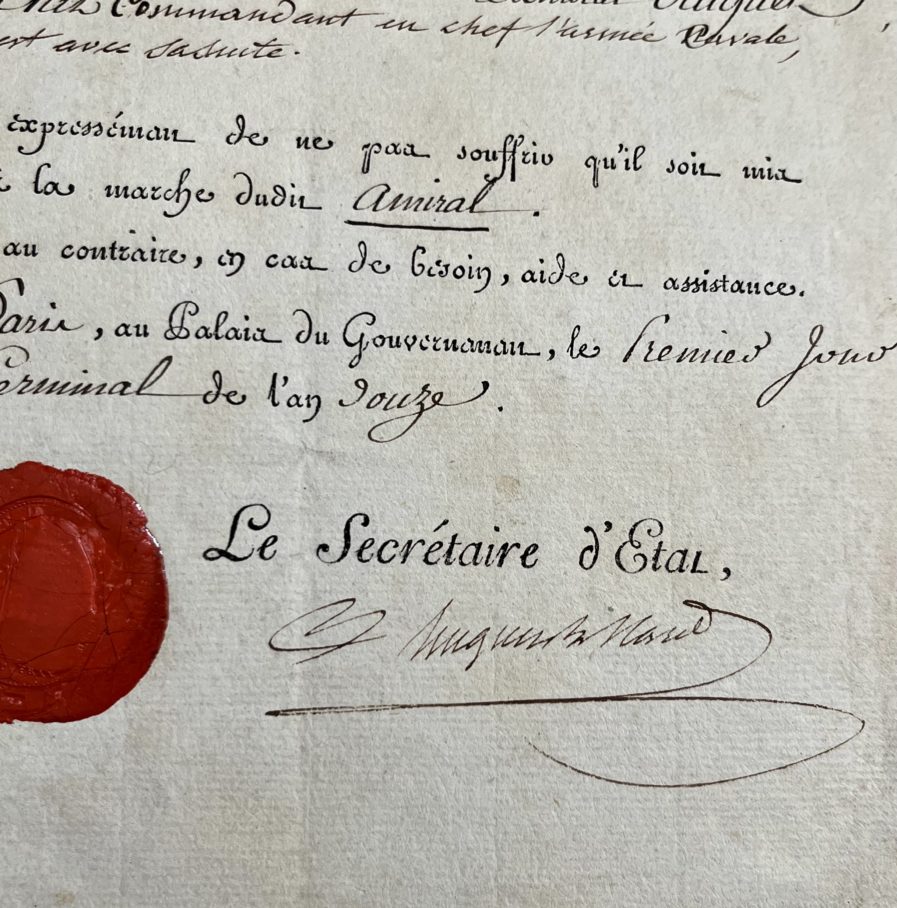 Commandant en chef l'armée Navale,
est avec sa suite.
expressément de ne pas souffrir qu'il soit mis
la marche dudit Amiral.
au contraire, en cas de besoin, aide et assistance.
Paris, au Palais du Gouvernement, le Premier Jour
Germinal de l'an douze.
Le Secrétaire d'Etat,
Hugues B. Maret